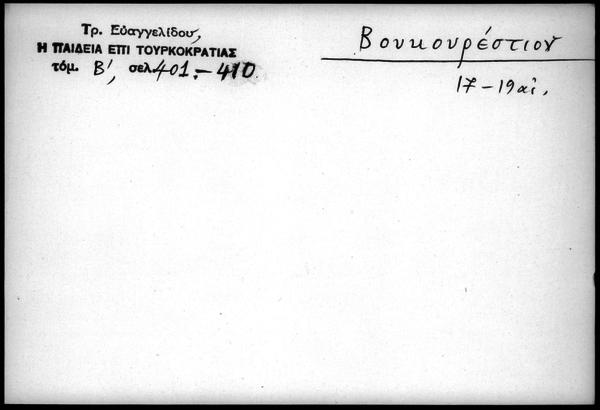 Τρ. Εὐαγγελίδου,
Η ΠΑΙΔΕΙΑ ΕΠΙ ΤΟΥΡΚΟΚΡΑΤΙΑΣ
τόμ. Β', σελ. 401.-410.
Βουκουρέστιον
17-19 αἰ.